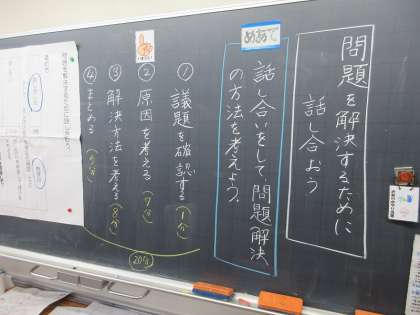 問題を解決するために
話し合おう
めあて
話し合いをして、問題解決
の方法を考えよう。
① 議題を確認する（1分）
② 原因を考える（7分）
③ 解決方法を考える（8分）
④ まとめる（4分）
20分